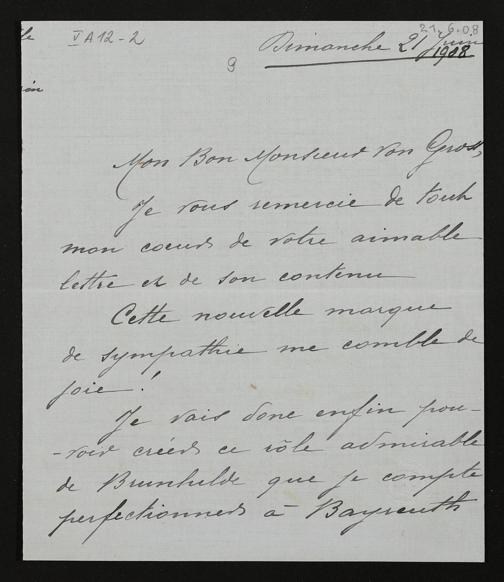 V A 12 - 2
21.6.08
9
Dimanche 21 Juin
1908
Mon Bon Monsieur von Gross,
Je vous remercie de tout
mon coeur de votre aimable
lettre et de son contenu
Cette nouvelle marque
de sympathie me comble de
joie !
Je vais donc enfin pou-
-voir créer ce rôle admirable
de Brunhilde que je compte
perfectionner à Bayreuth